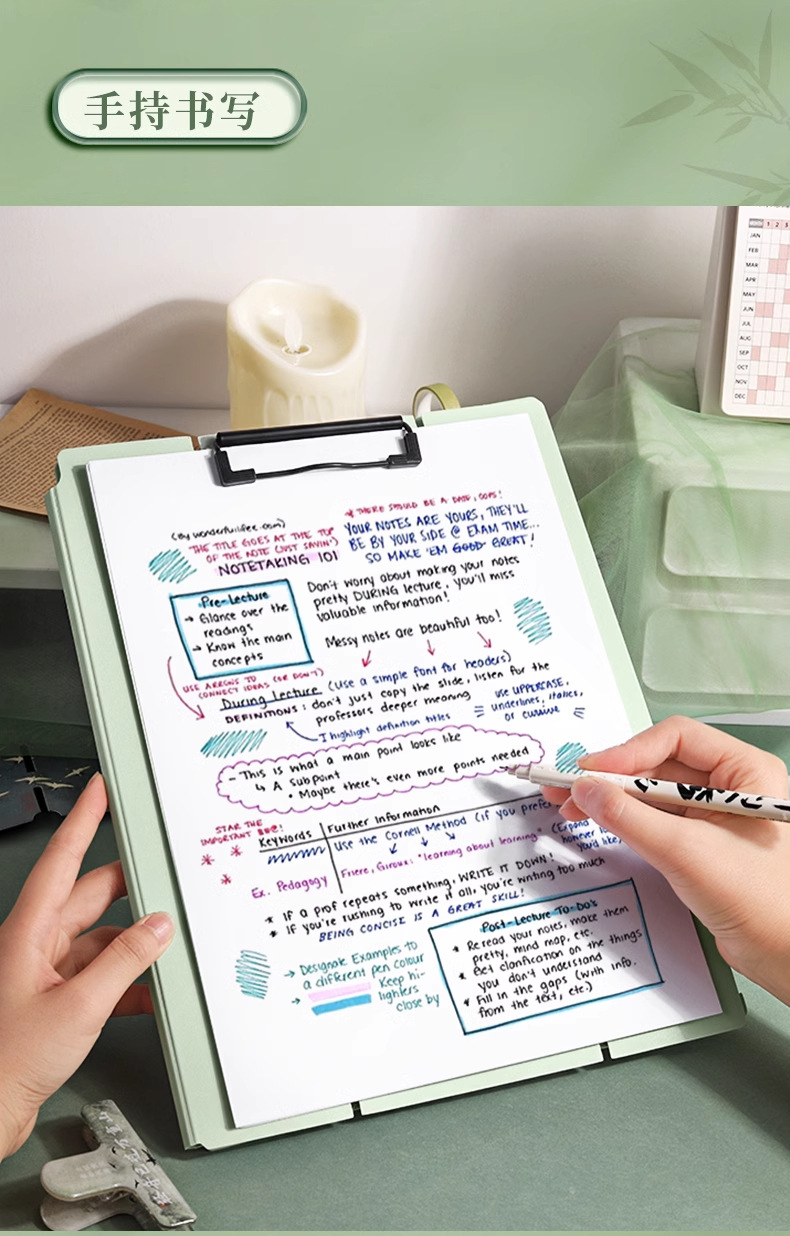 手持书写
MONTH 1 2 3
JAN
FEB
MAR
APR
MAY
JUN
JUL
AUG
SEP
OCT
NOV
DEC
* THERE SHOULD BE A DATE, OOPS!
YOUR NOTES ARE YOURS, THEY'LL
BE BY YOUR SIDE @ EXAM TIME...
SO MAKE 'EM GOOD GREAT!
(By wonderfulifee.osm)
THE TITLE GOES AT THE TOP
OF THE NOTE (JUST SAYIN')
NOTETAKING 101
Pre-Lecture
→ Glance over the
readings
→ Know the main
concepts
Don't worry about making your notes
pretty DURING lecture, you'll miss
valuable information!
Messy notes are beautiful too!
USE ARROWS TO
CONNECT IDEAS (OR DON'T)
During Lecture (use a simple font for headers)
DEFINITIONS: don't just copy the slide, listen for the
professors deeper meaning
I highlight definition titles
use UPPERCASE,
underlines, italics,
or cursive
- This is what a main point looks like
↳ A subpoint
• Maybe there's even more points needed
STAR THE
IMPORTANT
Keywords
Further Information
Use the Cornell Method (if you prefe
(Expand
however
you'd like)
Ex. Pedagogy
Friere, Giroux: "learning about learning"
* If a prof repeats something, WRITE IT DOWN!
* If you're rushing to write it all, you're writing too much
BEING CONCISE IS A GREAT SKILL!
→ Designate Examples to
a different pen colour
→ Keep hi-
lighters
close by
Post-Lecture To-Do's
* Reread your notes, make them
pretty, mind map, etc.
* Get clarification on the things
you don't understand
* Fill in the gaps (with info.
from the text, etc)